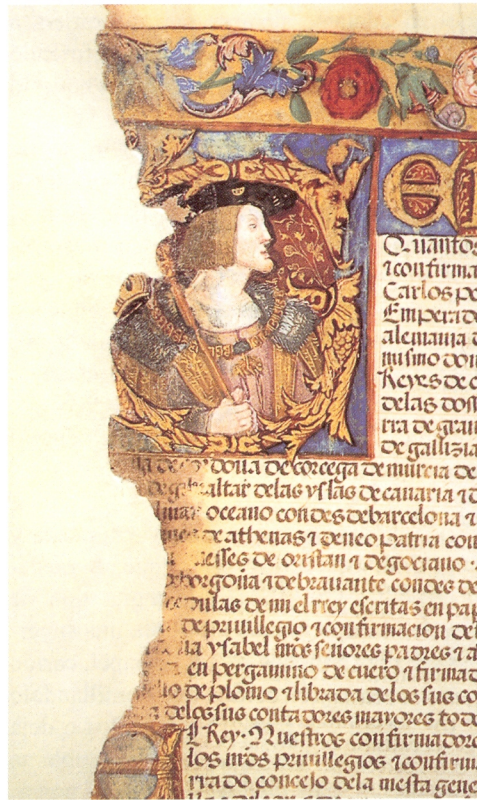 En
Quantos
⁊ confirma
Carlos po
Emperado
alemania d
mismo don
Reyes de c
delas dos
rra de gran
de gallizia
dova de corcega de murcia de
altar delas yslas de canaria ⁊ d
oceano condes de barcelona ⁊
de athenas ⁊ de neopatria con
esses de oristan ⁊ de gociano
borgoña ⁊ de bravante condes de
cedulas de mi el rrey escritas en pap
de privillegio ⁊ confirmacion de
ysabel nros señores padres ⁊ a
en pergamino de cuero ⁊ firmad
lo de plomo ⁊ librada delos sus co
delos sus contadores mayores tod
l Rey. Nuestros confirmadore
los nros privillegios ⁊ confirm
rrado concejo dela mesta gene